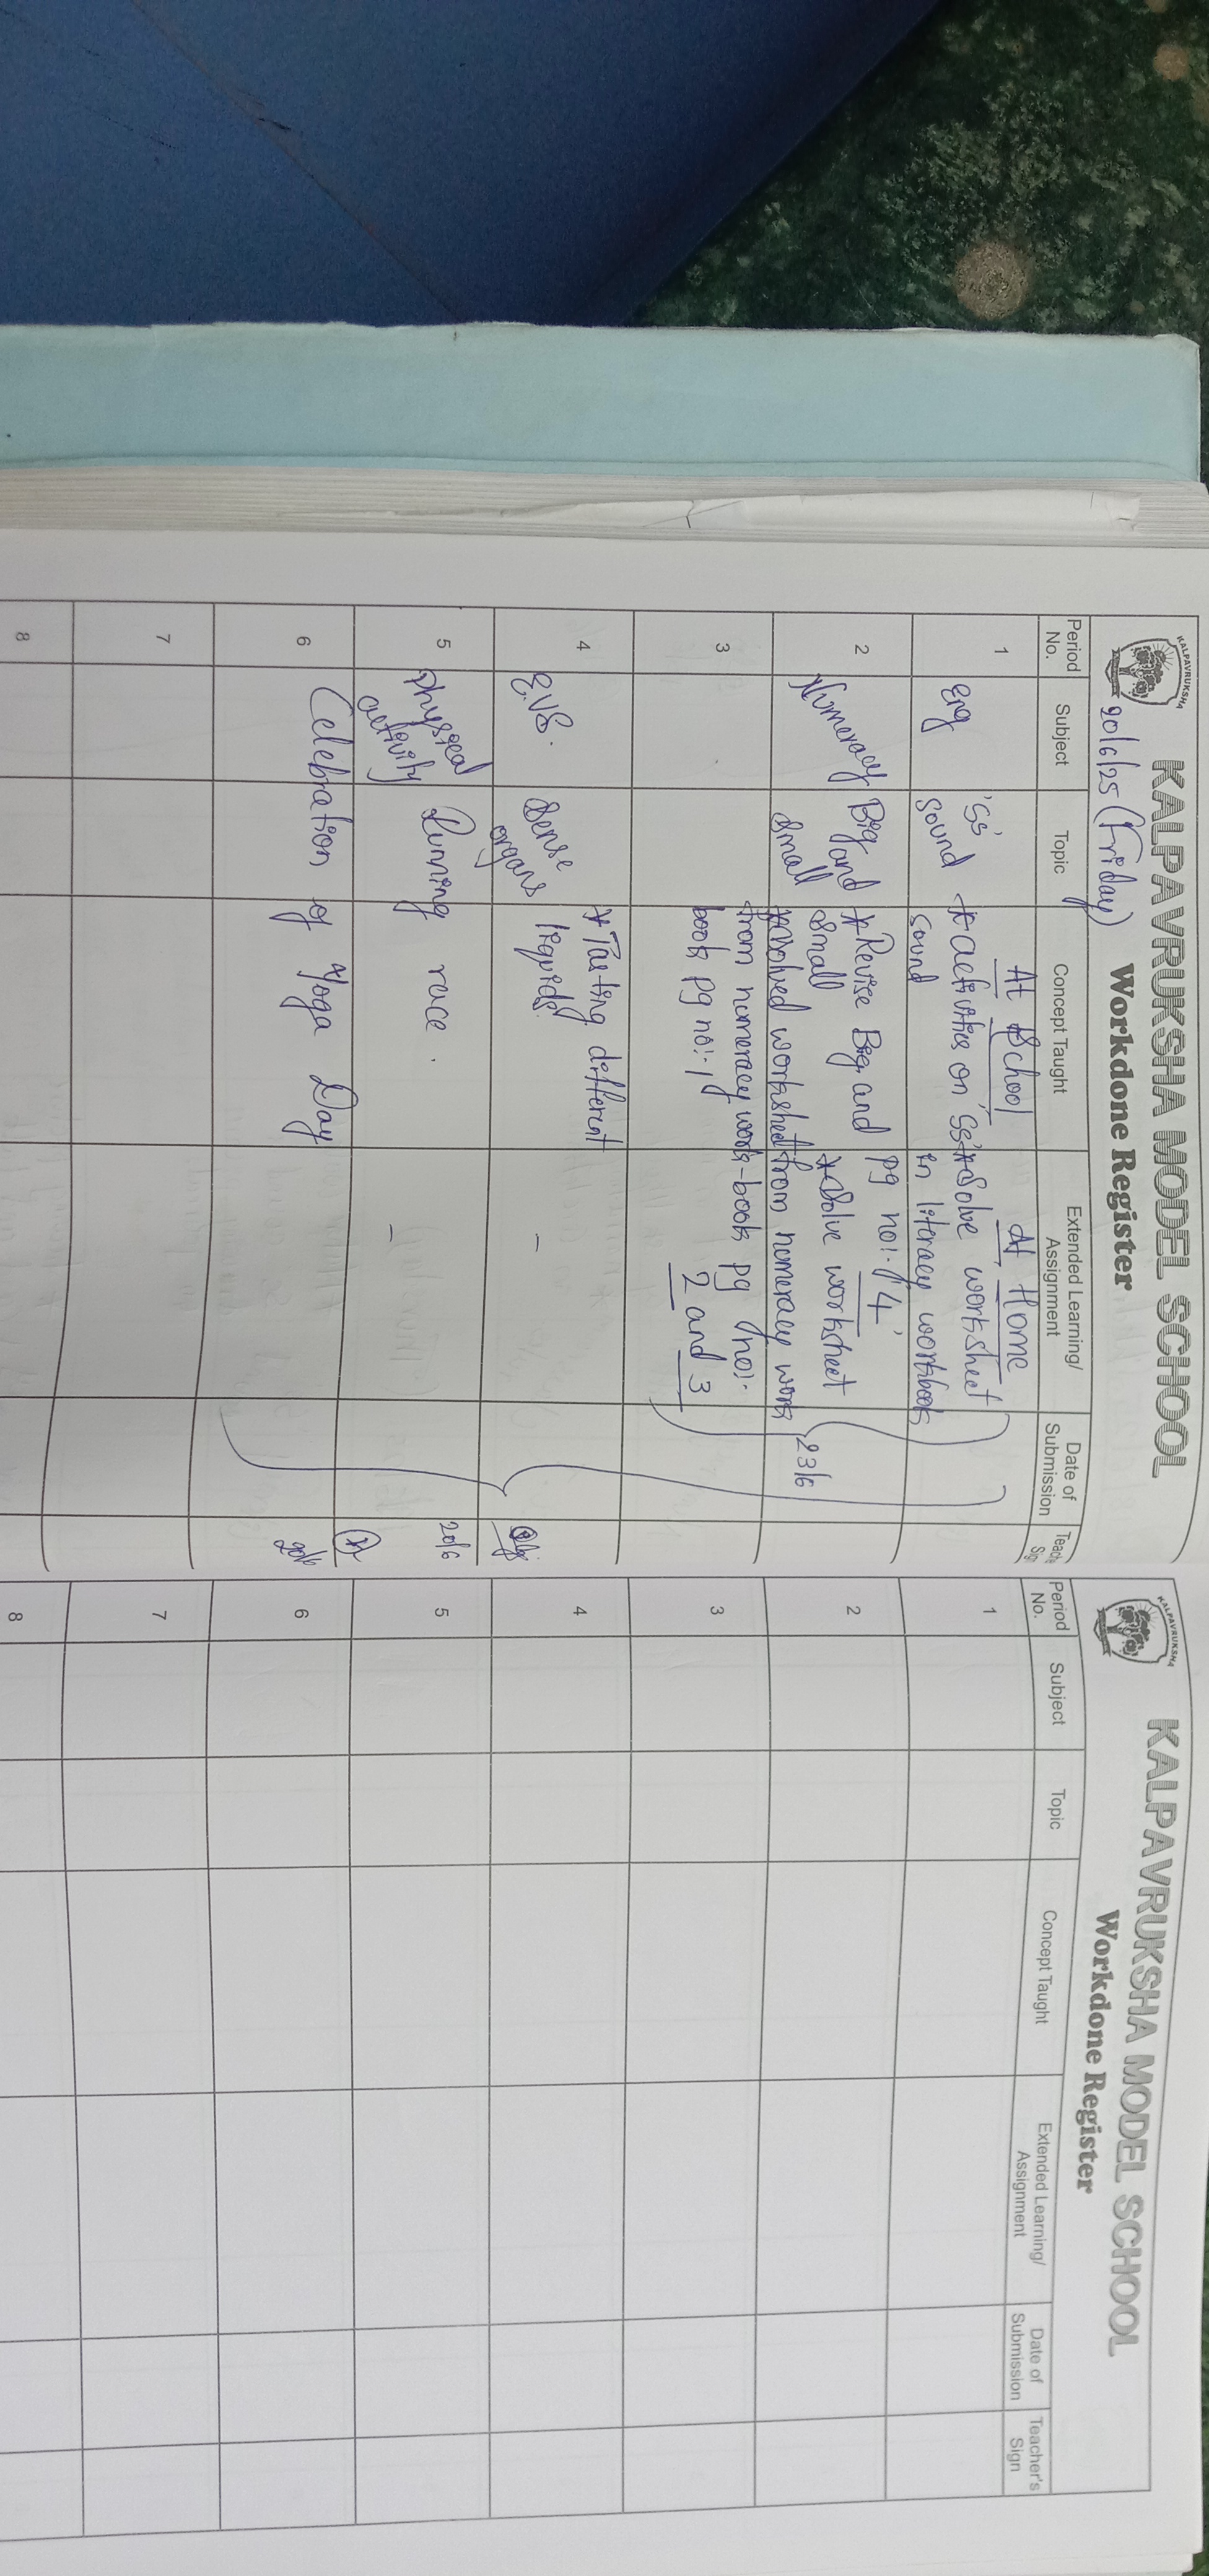 KALPAVRUKSHA
KALPAVRUKSHA MODEL SCHOOL
Workdone Register
20/6/25 (Friday)
Period No. Subject Topic Concept Taught Extended Learning/ Assignment Date of Submission Teach Sig
At School At Home
1 Eng 'Ss' sound * activities on 'Ss' sound * Solve worksheet in literacy workbook pg no:- '4'
2 Numeracy Big and small * Revise Big and small * Solve worksheet from numeracy work-book pg no:- 2 and 3 23/6
3 * Solved worksheet from numeracy work-book pg no:-1
4 E.V.S. Sense organs * Tasting different liquids. –
5 Physical activity Running race. – 20/6
6 Celebration of Yoga Day 20/6
7
8
KALPAVRUKSHA
KALPAVRUKSHA MODEL SCHOOL
Workdone Register
Period No. Subject Topic Concept Taught Extended Learning/ Assignment Date of Submission Teacher's Sign
1
2
3
4
5
6
7
8